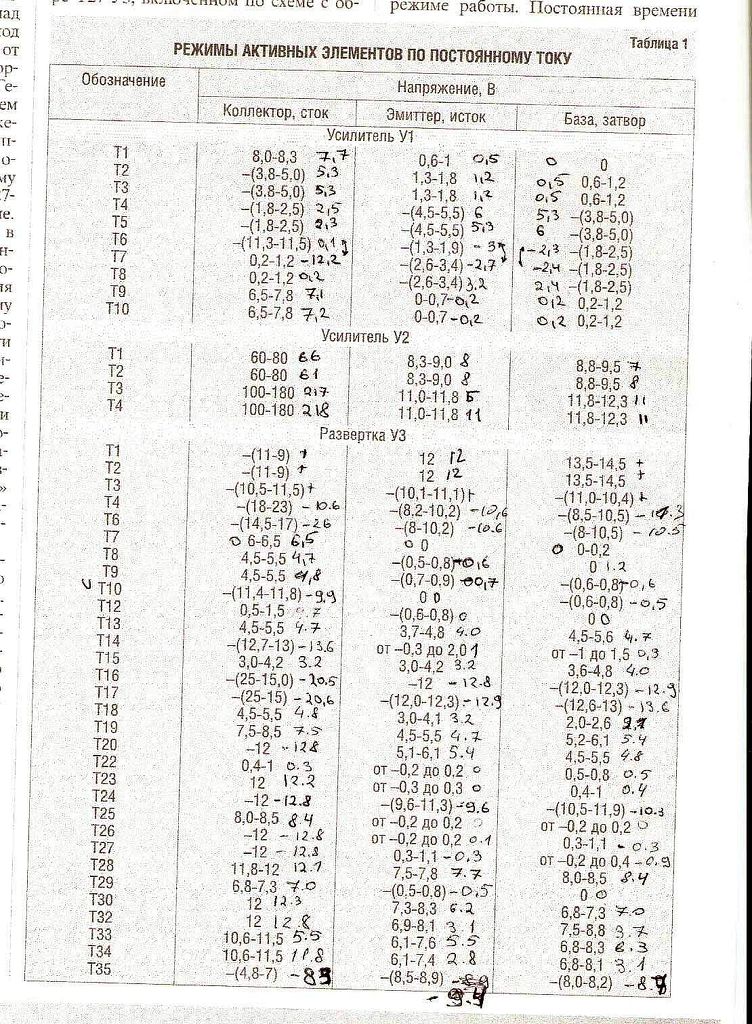 включенном по схеме с об-
режиме работы. Постоянная времени
Таблица 1
РЕЖИМЫ АКТИВНЫХ ЭЛЕМЕНТОВ ПО ПОСТОЯННОМУ ТОКУ
Обозначение Напряжение, В
Коллектор, сток Эмиттер, исток База, затвор
Усилитель У1
Т1 8,0-8,3 7,7 0,6-1 0,5 0 0
Т2 –(3,8-5,0) 5,3 1,3-1,8 1,2 0,5 0,6-1,2
Т3 –(3,8-5,0) 5,3 1,3-1,8 1,2 0,5 0,6-1,2
Т4 –(1,8-2,5) 2,5 –(4,5-5,5) 6 5,3 –(3,8-5,0)
Т5 –(1,8-2,5) 2,3 –(4,5-5,5) 5,3 6 –(3,8-5,0)
Т6 –(11,3-11,5) 0,1 –(1,3-1,9) -3 -2,3 –(1,8-2,5)
Т7 0,2-1,2 -12,2 –(2,6-3,4) -2,7 -2,4 –(1,8-2,5)
Т8 0,2-1,2 0,2 –(2,6-3,4) 3,2 2,4 –(1,8-2,5)
Т9 6,5-7,8 7,1 0-0,7 -0,2 0,2 0,2-1,2
Т10 6,5-7,8 7,2 0-0,7 -0,2 0,2 0,2-1,2
Усилитель У2
Т1 60-80 66 8,3-9,0 8 8,8-9,5 7
Т2 60-80 61 8,3-9,0 8 8,8-9,5 8
Т3 100-180 217 11,0-11,8 11,8-12,3 11
Т4 100-180 218 11,0-11,8 11 11,8-12,3 11
Развертка У3
Т1 –(11-9) + 12 12 13,5-14,5 +
Т2 –(11-9) + 12 12 13,5-14,5 +
Т3 –(10,5-11,5) + –(10,1-11,1) + –(11,0-10,4) +
Т4 –(18-23) -10.6 –(8,2-10,2) -10,6 –(8,5-10,5)
Т6 –(14,5-17) -26 –(8-10,2) -10.6 –(8-10,5) -10.5
Т7 0 6-6,5 6,5 0 0 0 0-0,2
Т8 4,5-5,5 4,7 –(0,5-0,8) -0,6 0 1.2
Т9 4,5-5,5 4,8 –(0,7-0,9) -0,7 –(0,6-0,8) -0,6
Т10 –(11,4-11,8) -9,9 0 0 –(0,6-0,8) -0,5
Т12 0,5-1,5 –(0,6-0,8) 0 0 0
Т13 4,5-5,5 4.7 3,7-4,8 4.0 4,5-5,6 4.7
Т14 –(12,7-13) -13.6 от –0,3 до 2,0 1 от –1 до 1,5 0,3
Т15 3,0-4,2 3.2 3,0-4,2 3.2 3,6-4,8 4.0
Т16 –(25-15,0) -20.5 –12 -12.8 –(12,0-12,3) -12.9
Т17 –(25-15) -20,6 –(12,0-12,3) -12.9 –(12,6-13) -13.6
Т18 4,5-5,5 4.8 3,0-4,1 3.2 2,0-2,6
Т19 7,5-8,5 7.5 4,5-5,5 4.7 5,2-6,1 5.4
Т20 –12 -12.8 5,1-6,1 5.4 4,5-5,5 4.8
Т22 0,4-1 0.3 от –0,2 до 0,2 0 0,5-0,8 0.5
Т23 12 12.2 от –0,3 до 0,3 0 0,4-1 0.4
Т24 –12 -12.8 –(9,6-11,3) -9.6 –(10,5-11,9) -10.3
Т25 8,0-8,5 8.4 от –0,2 до 0,2 0 от –0,2 до 0,2 0
Т26 –12 -12.8 от –0,2 до 0,2 0.1 0,3-1,1 -0.3
Т27 –12 -12,8 0,3-1,1 -0.3 от –0,2 до 0,4 -0.9
Т28 11,8-12 12.1 7,5-7,8 7.7 8,0-8,5 8.4
Т29 6,8-7,3 7.0 –(0,5-0,8) -0,5 0 0
Т30 12 12.3 7,3-8,3 6.2 6,8-7,3 7.0
Т32 12 12.8 6,9-8,1 3.1 7,5-8,8 3.7
Т33 10,6-11,5 5.5 6,1-7,6 5.5 6,8-8,3 6.3
Т34 10,6-11,5 11.8 6,1-7,4 2.8 6,8-8,1 3.1
Т35 –(4,8-7) –(8,5-8,9) –(8,0-8,2)
-9.4